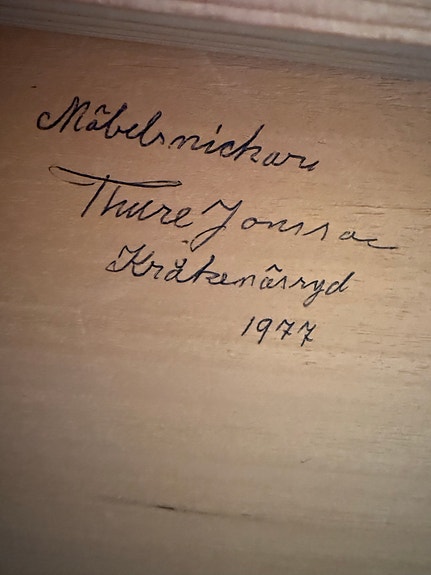 Möbelsnickare
Thure Jonsson
Kråkenäsryd
1977